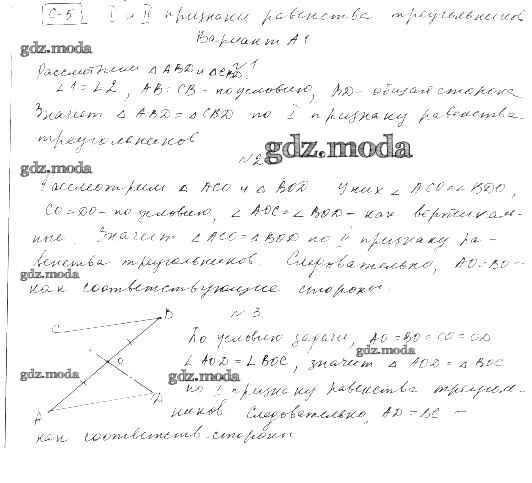 С-5 I и II признаки равенства треугольников
Вариант А1
№1
Рассмотрим △ABD и △CBD
∠1=∠2, AB=CB - по условию, BD - общая сторона
Значит △ABD=△CBD по I признаку равенства
треугольников
gdz.moda
gdz.moda
gdz.moda
№2
Рассмотрим △ACO и △BOD У них ∠ACO=∠BDO,
CO=DO - по условию, ∠AOC=∠BOD - как вертикаль-
ные. Значит △ACO=△BOD по II признаку ра-
венства треугольников. Следовательно, AO=BO -
gdz.moda
как соответствующие стороны.
№3
B
C
O
D
A
По условию задачи, AO=BO=CO=OD
gdz.moda
∠AOD=∠BOC, значит △AOD=△BOC
gdz.moda
gdz.moda
по I признаку равенства треуголь-
ников. Следовательно, AD=BC -
как соответств. стороны